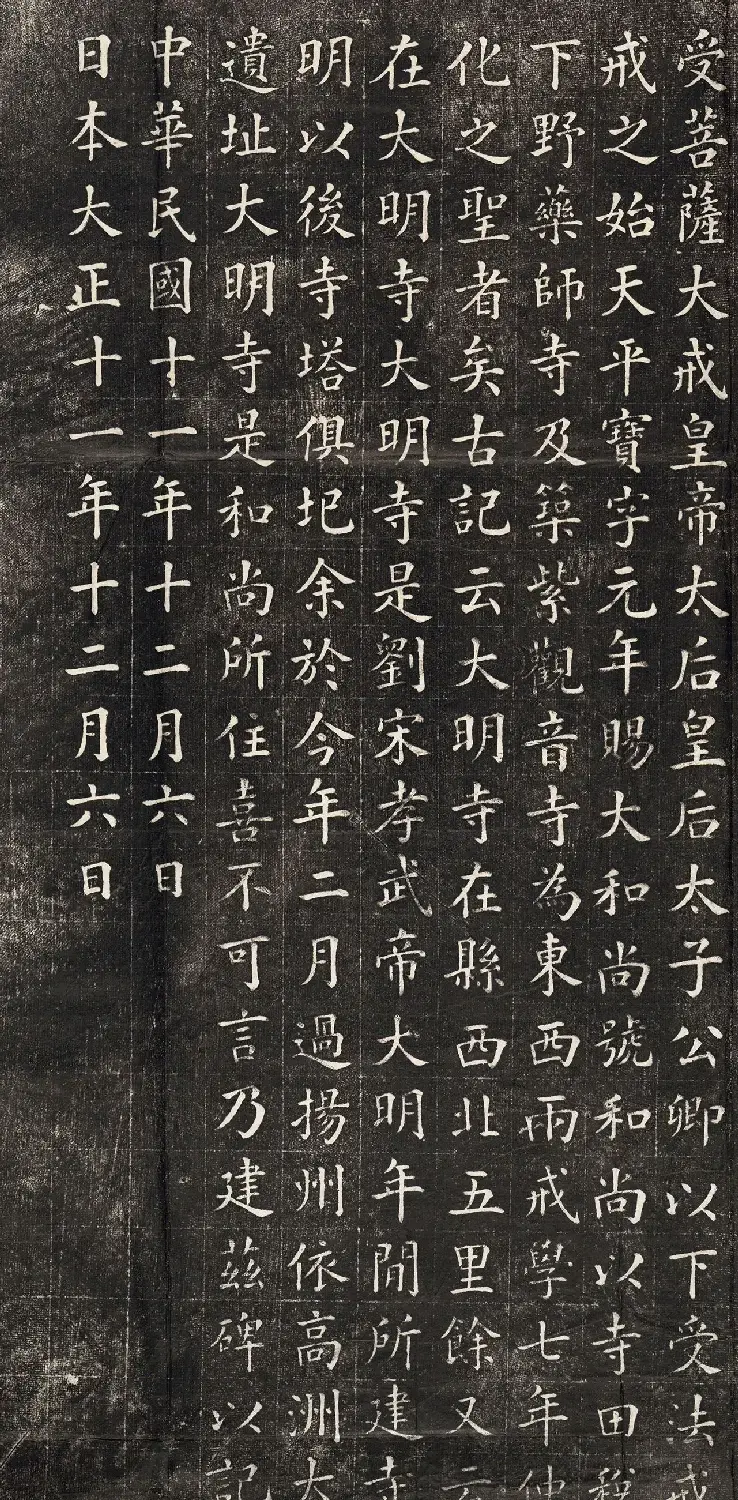 受菩薩大戒皇帝太后皇后太子公卿以下受法戒
戒之始天平寶字元年賜大和尚號和尚以寺田
下野藥師寺及築紫觀音寺為東西兩戒學七年仲
化之聖者矣古記云大明寺在縣西北五里餘又云
在大明寺大明寺是劉宋孝武帝大明年間所建寺
明以後寺塔俱圮余於今年二月過揚州依高洲大
遺址大明寺是和尚所住喜不可言乃建茲碑以記
中華民國十一年十二月六日
日本大正十一年十二月六日